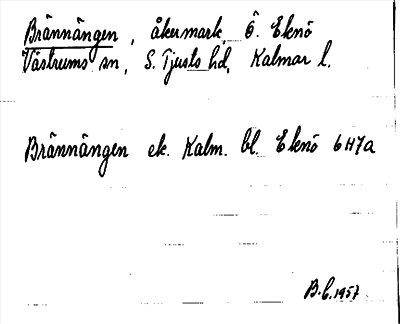 Brännängen, åkermark, Ö. Eknö
Västrums sn, S. Tjusts hd, Kalmar l.
Brännängen ek. Kalm. bl. Eknö 6H7a
B.L. 1957